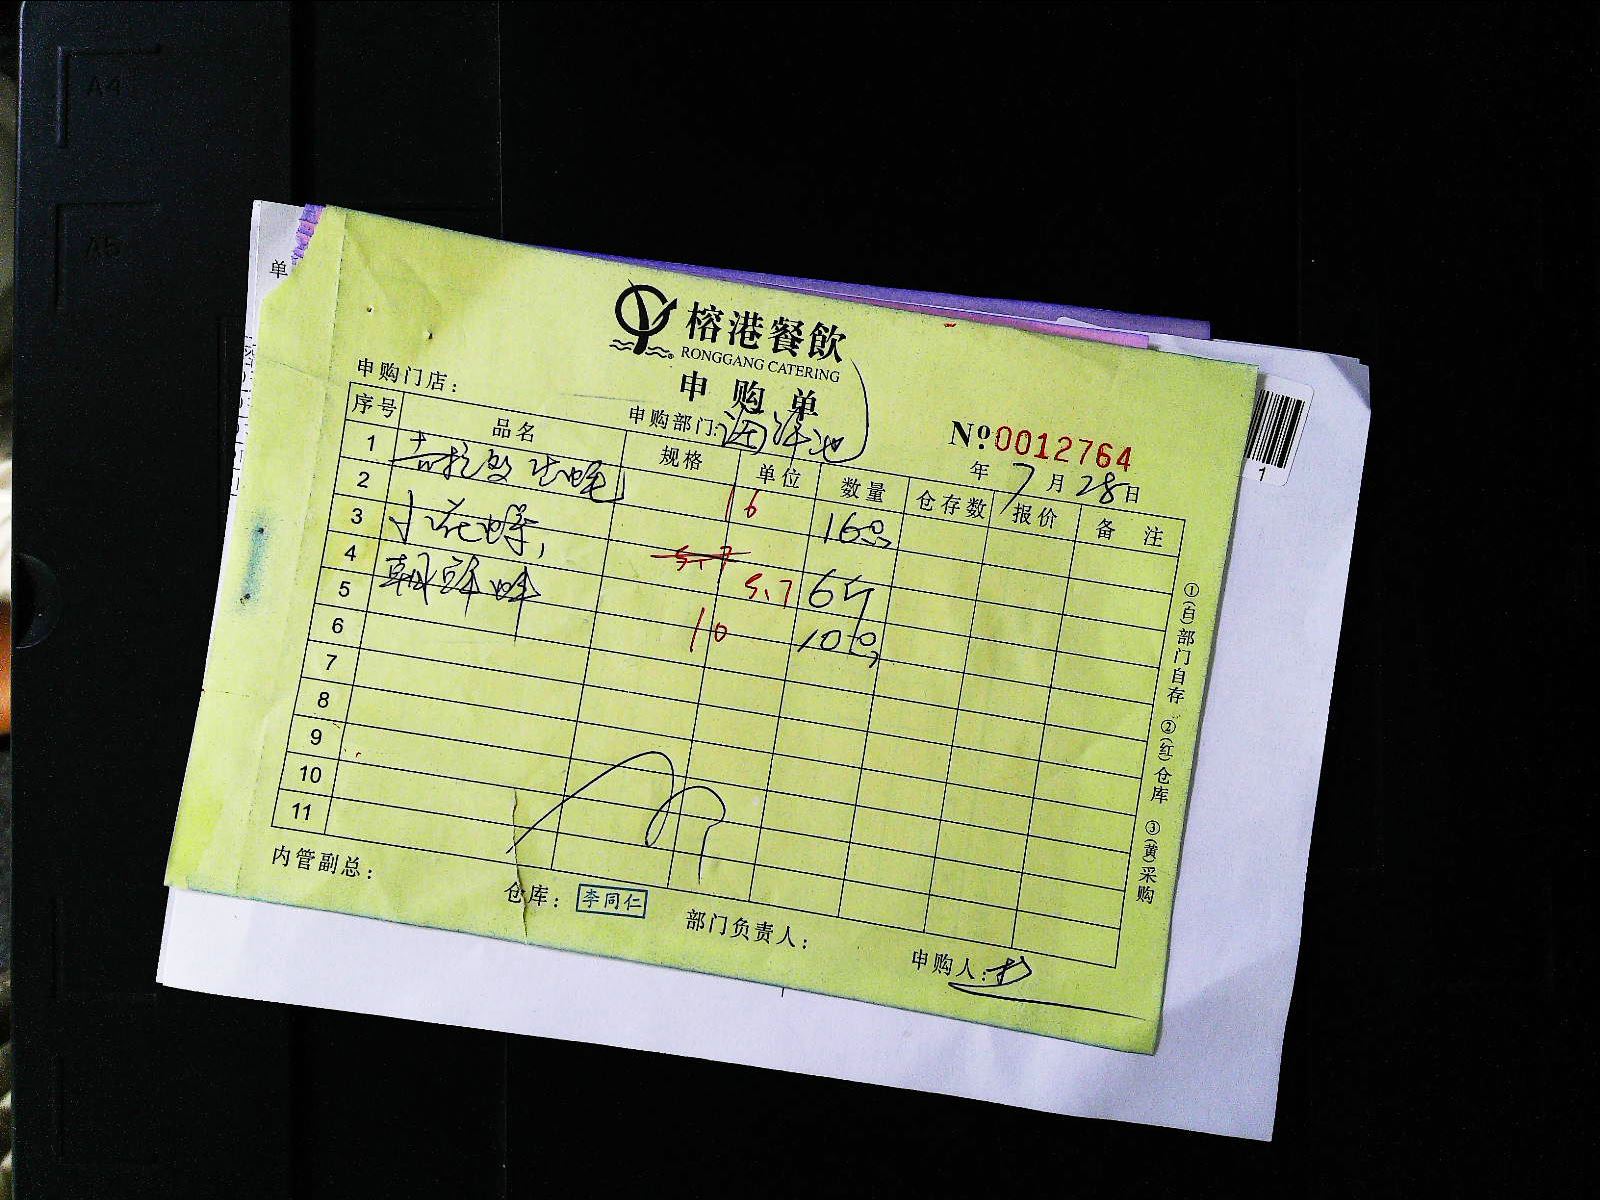 A4
A5
单
榕港餐飲
RONGGANG CATERING
申购单
申购门店：
申购部门：海鲜池
№0012764
年7月28日
序号 品名 规格 单位 数量 仓存数 报价 备注
1 吉拉多生蚝 16 16只
2
3 小花螺 5.7
4 5.7 6斤
5 10 10只
6
7
8
9
10
11
①(白)部门自存 ②(红)仓库 ③(黄)采购
内管副总：
仓库：李同仁
部门负责人：
申购人：
1